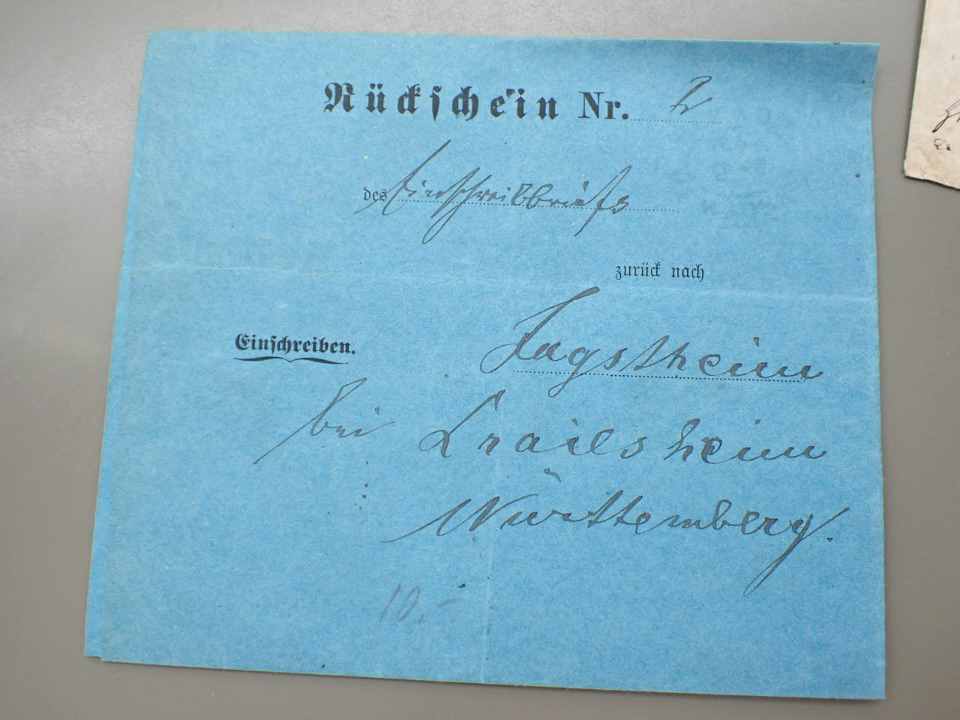 Rückschein Nr. 2
des Einschreibbriefs
zurück nach
Einschreiben.
Jagstheim
bei Crailsheim
Württemberg.
10.-